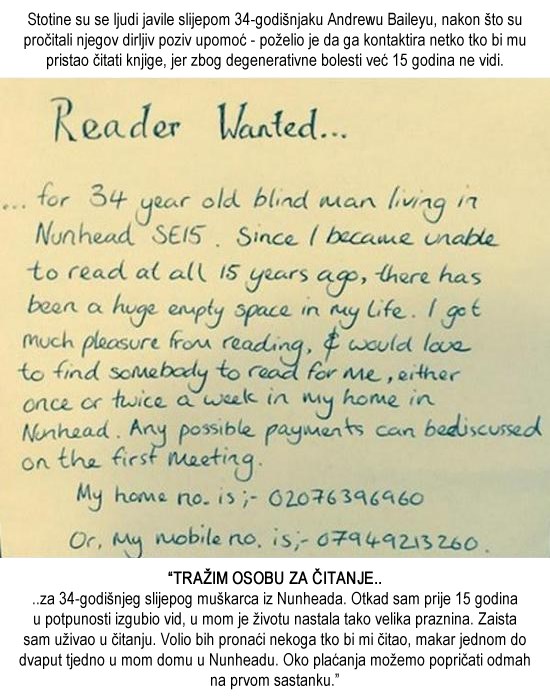 Stotine su se ljudi javile slijepom 34-godišnjaku Andrewu Baileyu, nakon što su
pročitali njegov dirljiv poziv upomoć - poželio je da ga kontaktira netko tko bi mu
pristao čitati knjige, jer zbog degenerativne bolesti već 15 godina ne vidi.
Reader Wanted...
... for 34 year old blind man living in
Nunhead SE15. Since I became unable
to read at all 15 years ago, there has
been a huge empty space in my life. I got
much pleasure from reading, & would love
to find somebody to read for me, either
once or twice a week in my home in
Nunhead. Any possible payments can bediscussed
on the first meeting.
My home no. is ;- 02076396960
Or, My mobile no. is;- 07949213260.
“TRAŽIM OSOBU ZA ČITANJE..
..za 34-godišnjeg slijepog muškarca iz Nunheada. Otkad sam prije 15 godina
u potpunosti izgubio vid, u mom je životu nastala tako velika praznina. Zaista
sam uživao u čitanju. Volio bih pronaći nekoga tko bi mi čitao, makar jednom do
dvaput tjedno u mom domu u Nunheadu. Oko plaćanja možemo popričati odmah
na prvom sastanku.”